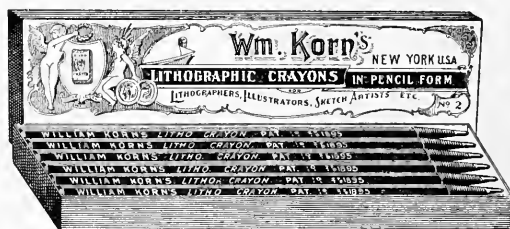 Wm. Korn's
NEW YORK U.S.A
LITHOGRAPHIC CRAYONS IN PENCIL FORM
FOR
LITHOGRAPHERS, ILLUSTRATORS, SKETCH ARTISTS ETC.
No 2
WILLIAM KORN'S LITHO CRAYON. PAT.
WILLIAM KORN'S LITHO CRAYON. PAT.
WILLIAM KORN'S LITHO. CRAYON. PAT.
WILLIAM KORN'S LITHO. CRAYON. PAT.
WILLIAM KORN'S LITHO. CRAYON. PAT.
WILLIAM KORN'S LITHO. CRAYON. PAT.